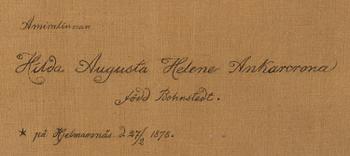 Amiralinnan
Hilda Augusta Helene Ankarcrona
född Bohnstedt.
* på Hjelmarsnäs d. 27/2 1876.